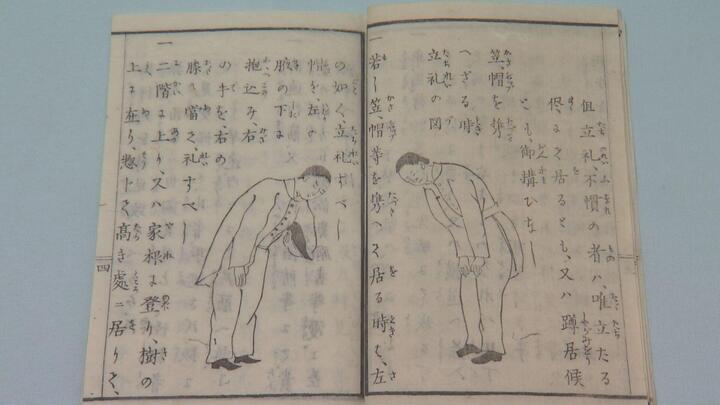 但立礼、不慣の者ハ、唯立たる
侭にて居るとも、又ハ蹲居候
とも御搆ひなし
笠、帽を携
へざる時
立礼の図
一若し笠、帽等を携へて居る時ハ、左
の如く、立礼すべし
帽を、左の
腋の下に
抱込み、右
の手を右の
膝に當て礼すべし
一二階に上り、又ハ家根に登り、樹の
上に在り、惣じて高き處ニ居りて、
四